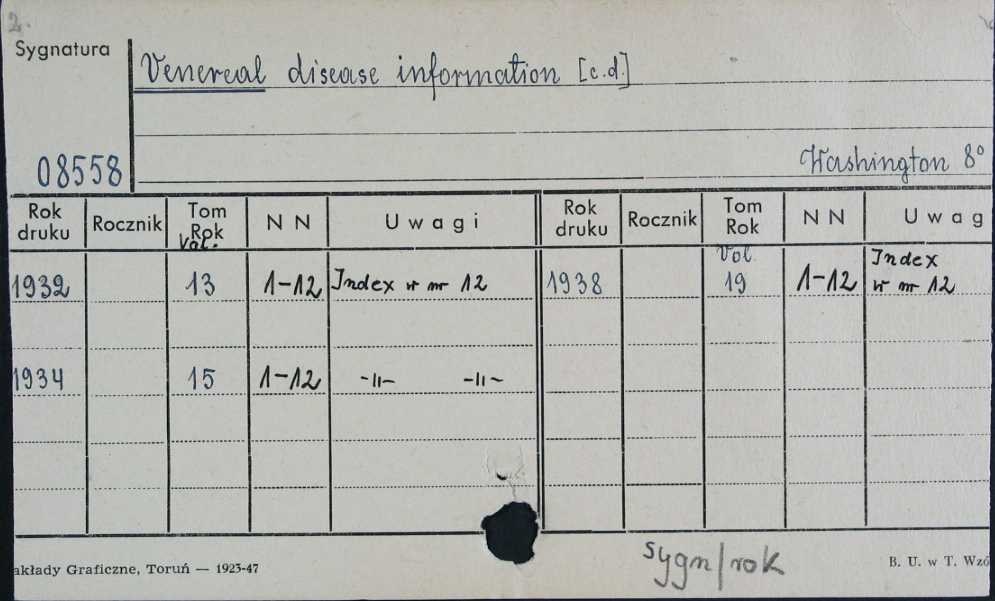 2.
Sygnatura
Venereal disease information [c.d.]
08558
Washington 8°
Rok druku Rocznik Tom Rok N N Uwagi Rok druku Rocznik Tom Rok N N Uwag
Vol. Vol
1932 13 1-12 Index w nr 12 1938 19 1-12 Index w nr 12
1934 15 1-12 -||- -||-
sygn/rok
akłady Graficzne, Toruń — 1925-47 B. U. w T. Wzó